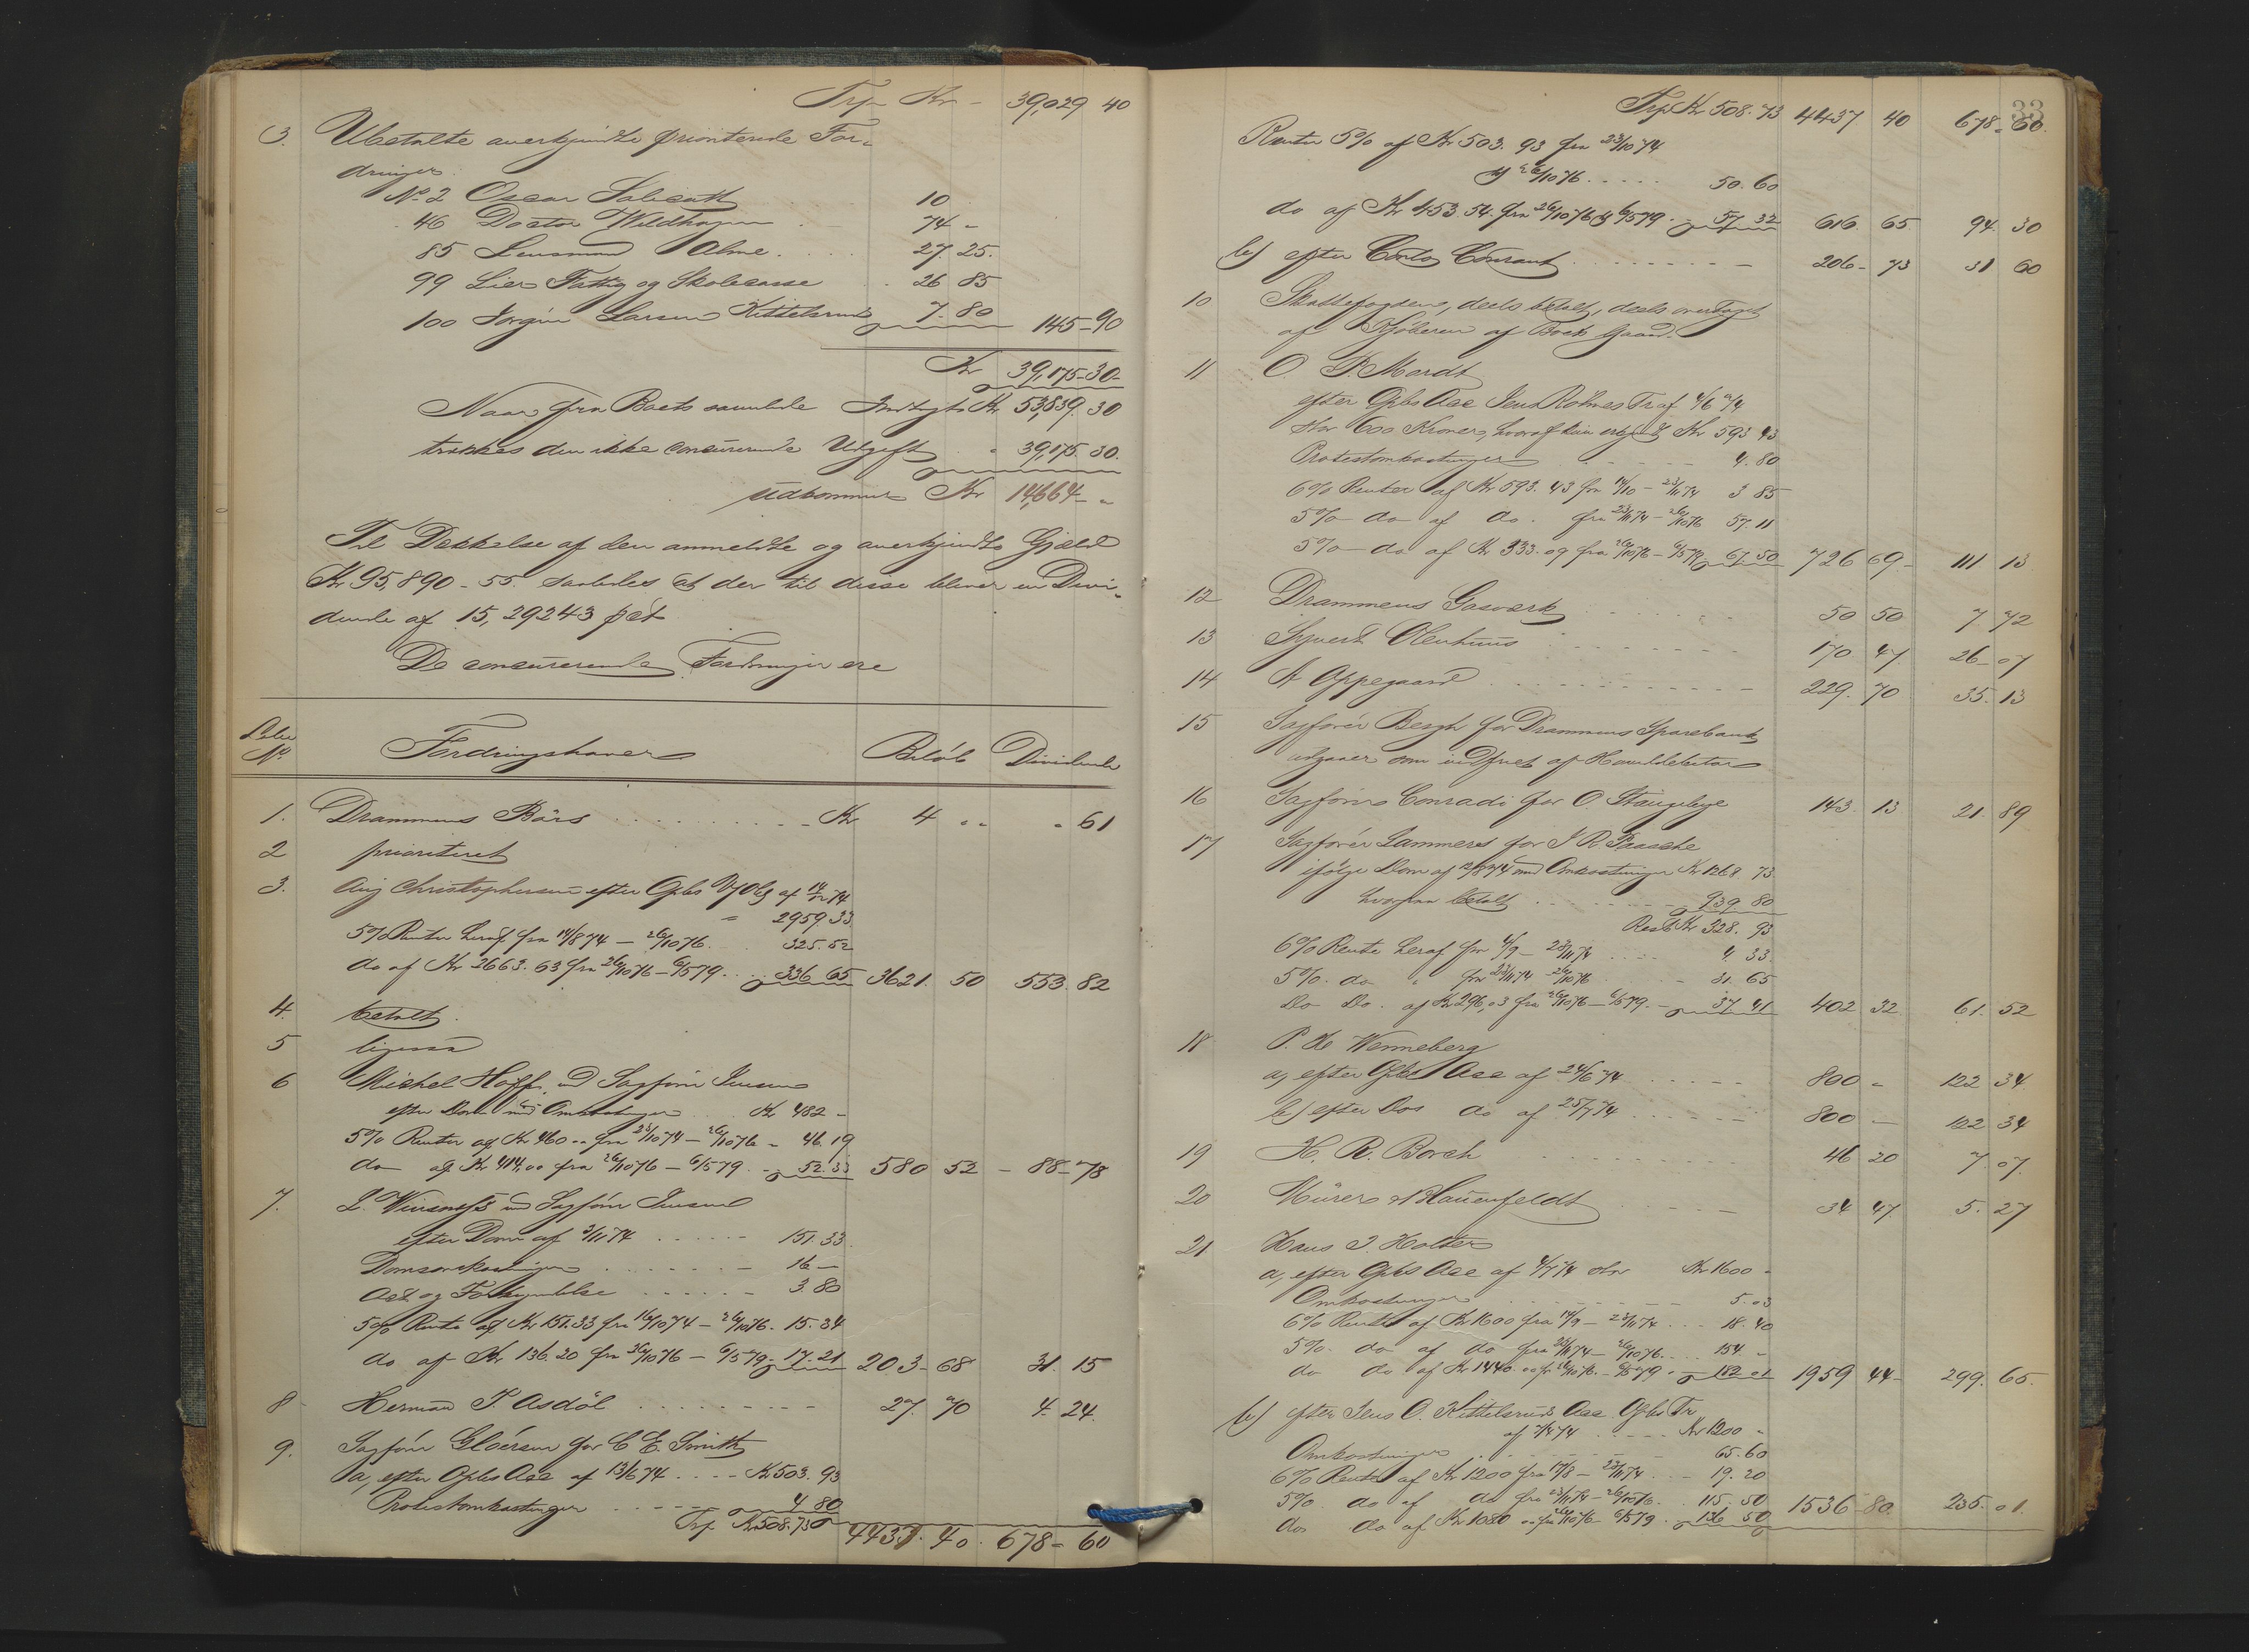 Trp Kr - 39,029 40
3. Ubetalte anerkjendte prioriterede For-
dringer.
No 2 Oscar 10
46 Doctor Wildhagen 74 -
85 Lensmand Alme 27. 25.
99 Liers Fattig og Skolecasse 26 85
100 Jørgen Larsen Kittelsrud 7. 80 145-90
Kr 39,175-30-
Naar fra Boets samlede Indtægt Kr 53,839. 30
trækkes den ikke concurerende Udgift " 39,175. 30.
udkommer Kr 14,664- "
Til Dækkelse af den anmeldte og anerkjendte Gjæld
Kr. 95,890-55. saaledes at der til disse bliver en Divi-
dende af 15,29243 pCt.
De concurerende Fordringer ere
Løbe No Fordringshaver Beløb Dividende
1. Drammens Børs Kr 4 " " " 61
2 prioriteret
3. Aug Christophersen efter Gjbs af 14/2 74
" 2959.33
5% Renter heraf fra 14/8 74 - 26/10 76. 325.52
do af Kr 2663.63 fra 26/10 76 - 6/5 79. 336 65 3621. 50 553. 82
4. betalt.
5 ligesaa
6 Michel Hoff ved Sagfører Jensen
efter Dom med Omkostninger Kr 482 -
5% Renter af Kr 460 " " fra 23/10 74 - 26/10 76 - 46.19
do af Kr 414,00 fra 26/10 76 - 6/5 79. - 52.33 580 52 - 88-78
7. L. Wiisnæss ved Sagfører Jensen
efter Dom af 3/11 74 151.33.
Domsomkostninger 16 -
Act og Forkyndelse 3.80
5% Rente af Kr 151.33 fra 16/10 74 - 26/10 76. 15.34
do af Kr 136.20 fra 26/10 76 - 6/5 79. 17.21 203-68 31. 15
8 Herman T. Asdøl 27. 70 4. 24.
9. Sagfører Gløersen for C E. Smith
a, efter Gjbs Acc af 13/6 74 Kr 503. 93
Protestomkostninger 4 80
Trp Kr 508.73 4437. 40. 678- 60
33
Trp Kr 508.73 4437 40 678- 60.
Renter 5% af Kr 503. 93 fra 23/10 74
til 26/10 76 50.60
do af Kr 453.54. fra 26/10 76 til 6/5 79. - 57 32 616 65 94. 30
b) efter Conto Courant 206- 73 31 60
10 Skattefogden, deels betalt, deels overtaget
af Kjøberen af Boets Gaard.
11 O. P. Mordt
efter Gjbs Acc Jens Røhnes Tr af 4/6 74
stor 600 Kroner, hvoraf kun erkjendt Kr 593 43
Protestomkostninger 4.80
6% Renter af Kr 593. 43 fra 14/10 - 23/11 74 3 85
5% do af do. fra 23/11 74 - 26/10 76 57.11
5% do af Kr 333.09 fra 26/10 76 - 6/5 79 67.50 726 69- 111 13
12 Drammens Gasværk 50 50 7 72
13 Syvert Olenhuus 170 47 26-07
14 A Oppegaard 229. 70 35. 13
15 Sagfører Bergh for Drammens Sparebank
udgaaer som indfriet af Hoveddebitor
16 Sagfører Conradi for O. Stangebye 143. 13 21 89
17 Sagfører Lammers for J R. Paasche
ifølge Dom af 12/8 74 med Omkostninger Kr 1268 73
hvorpaa betalt 939 80
Rest Kr 328. 93
6% Rente heraf fra 4/9 - 23/11 74 4. 33
5%. do " fra 23/11 74 26/10 76 - 31 65
Do Do. af Kr 296,03 fra 26/10 76 - 6/5 79. 37 41 402 32 61. 52
18 P. H Wenneberg
a, efter Gjbs Acc af 24/6 74 800 - 122 34
b) efter Dos do af 25/7 74 800 - 122 34
19 H. R. Borch 46 20 7. 07.
20 Murer Blauenfeldt 34 47. 5. 27
21 Hans J. Holter
a, efter Gjbs Acc af 4/7 74 stor Kr 1600 -
Omkostninger 5.03
6% Rente af Kr 1600 fra 14/9 - 23/11 74 18.40
5%. do af do fra 23/11 74 - 26/10 76. 154. -
do do af Kr 1440.00 fra 26/10 76 - 6/5 79. - 182 01 1959 44- 299. 65.
b) efter Jens O. Kittelsruds Acc Gjbs Tr
af 7/4 74 Kr 1200 -
Omkostninger 65.60
6% Rente af Kr 1200 fra 17/8 - 23/11 74 - 19.20
5% do af do fra 23/11 74 - 26/10 76. 115.50
do do af Kr 1080 " " fra 26/10 76 - 6/5 79. 136 50 1536 80. 235. 01.